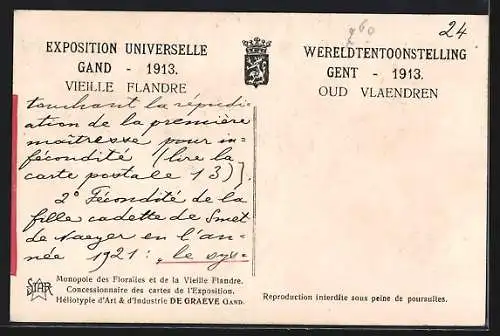 24
EXPOSITION UNIVERSELLE
GAND - 1913.
VIEILLE FLANDRE
WERELDTENTOONSTELLING
GENT - 1913.
OUD VLAENDREN
touchant la répudi-
ation de la première
maîtresse pour in=
fécondité (lire la
carte postale 13)].
2° Fécondité de la
fille cadette de Smet
de Naeyer en l'an=
née 1921 : le sys-
STAR
Monopole des Floralies et de la Vieille Flandre.
Concessionnaire des cartes de l'Exposition.
Héliotypie d'Art & d'Industrie DE GRAEVE GAND.
Reproduction interdite sous peine de poursuites.